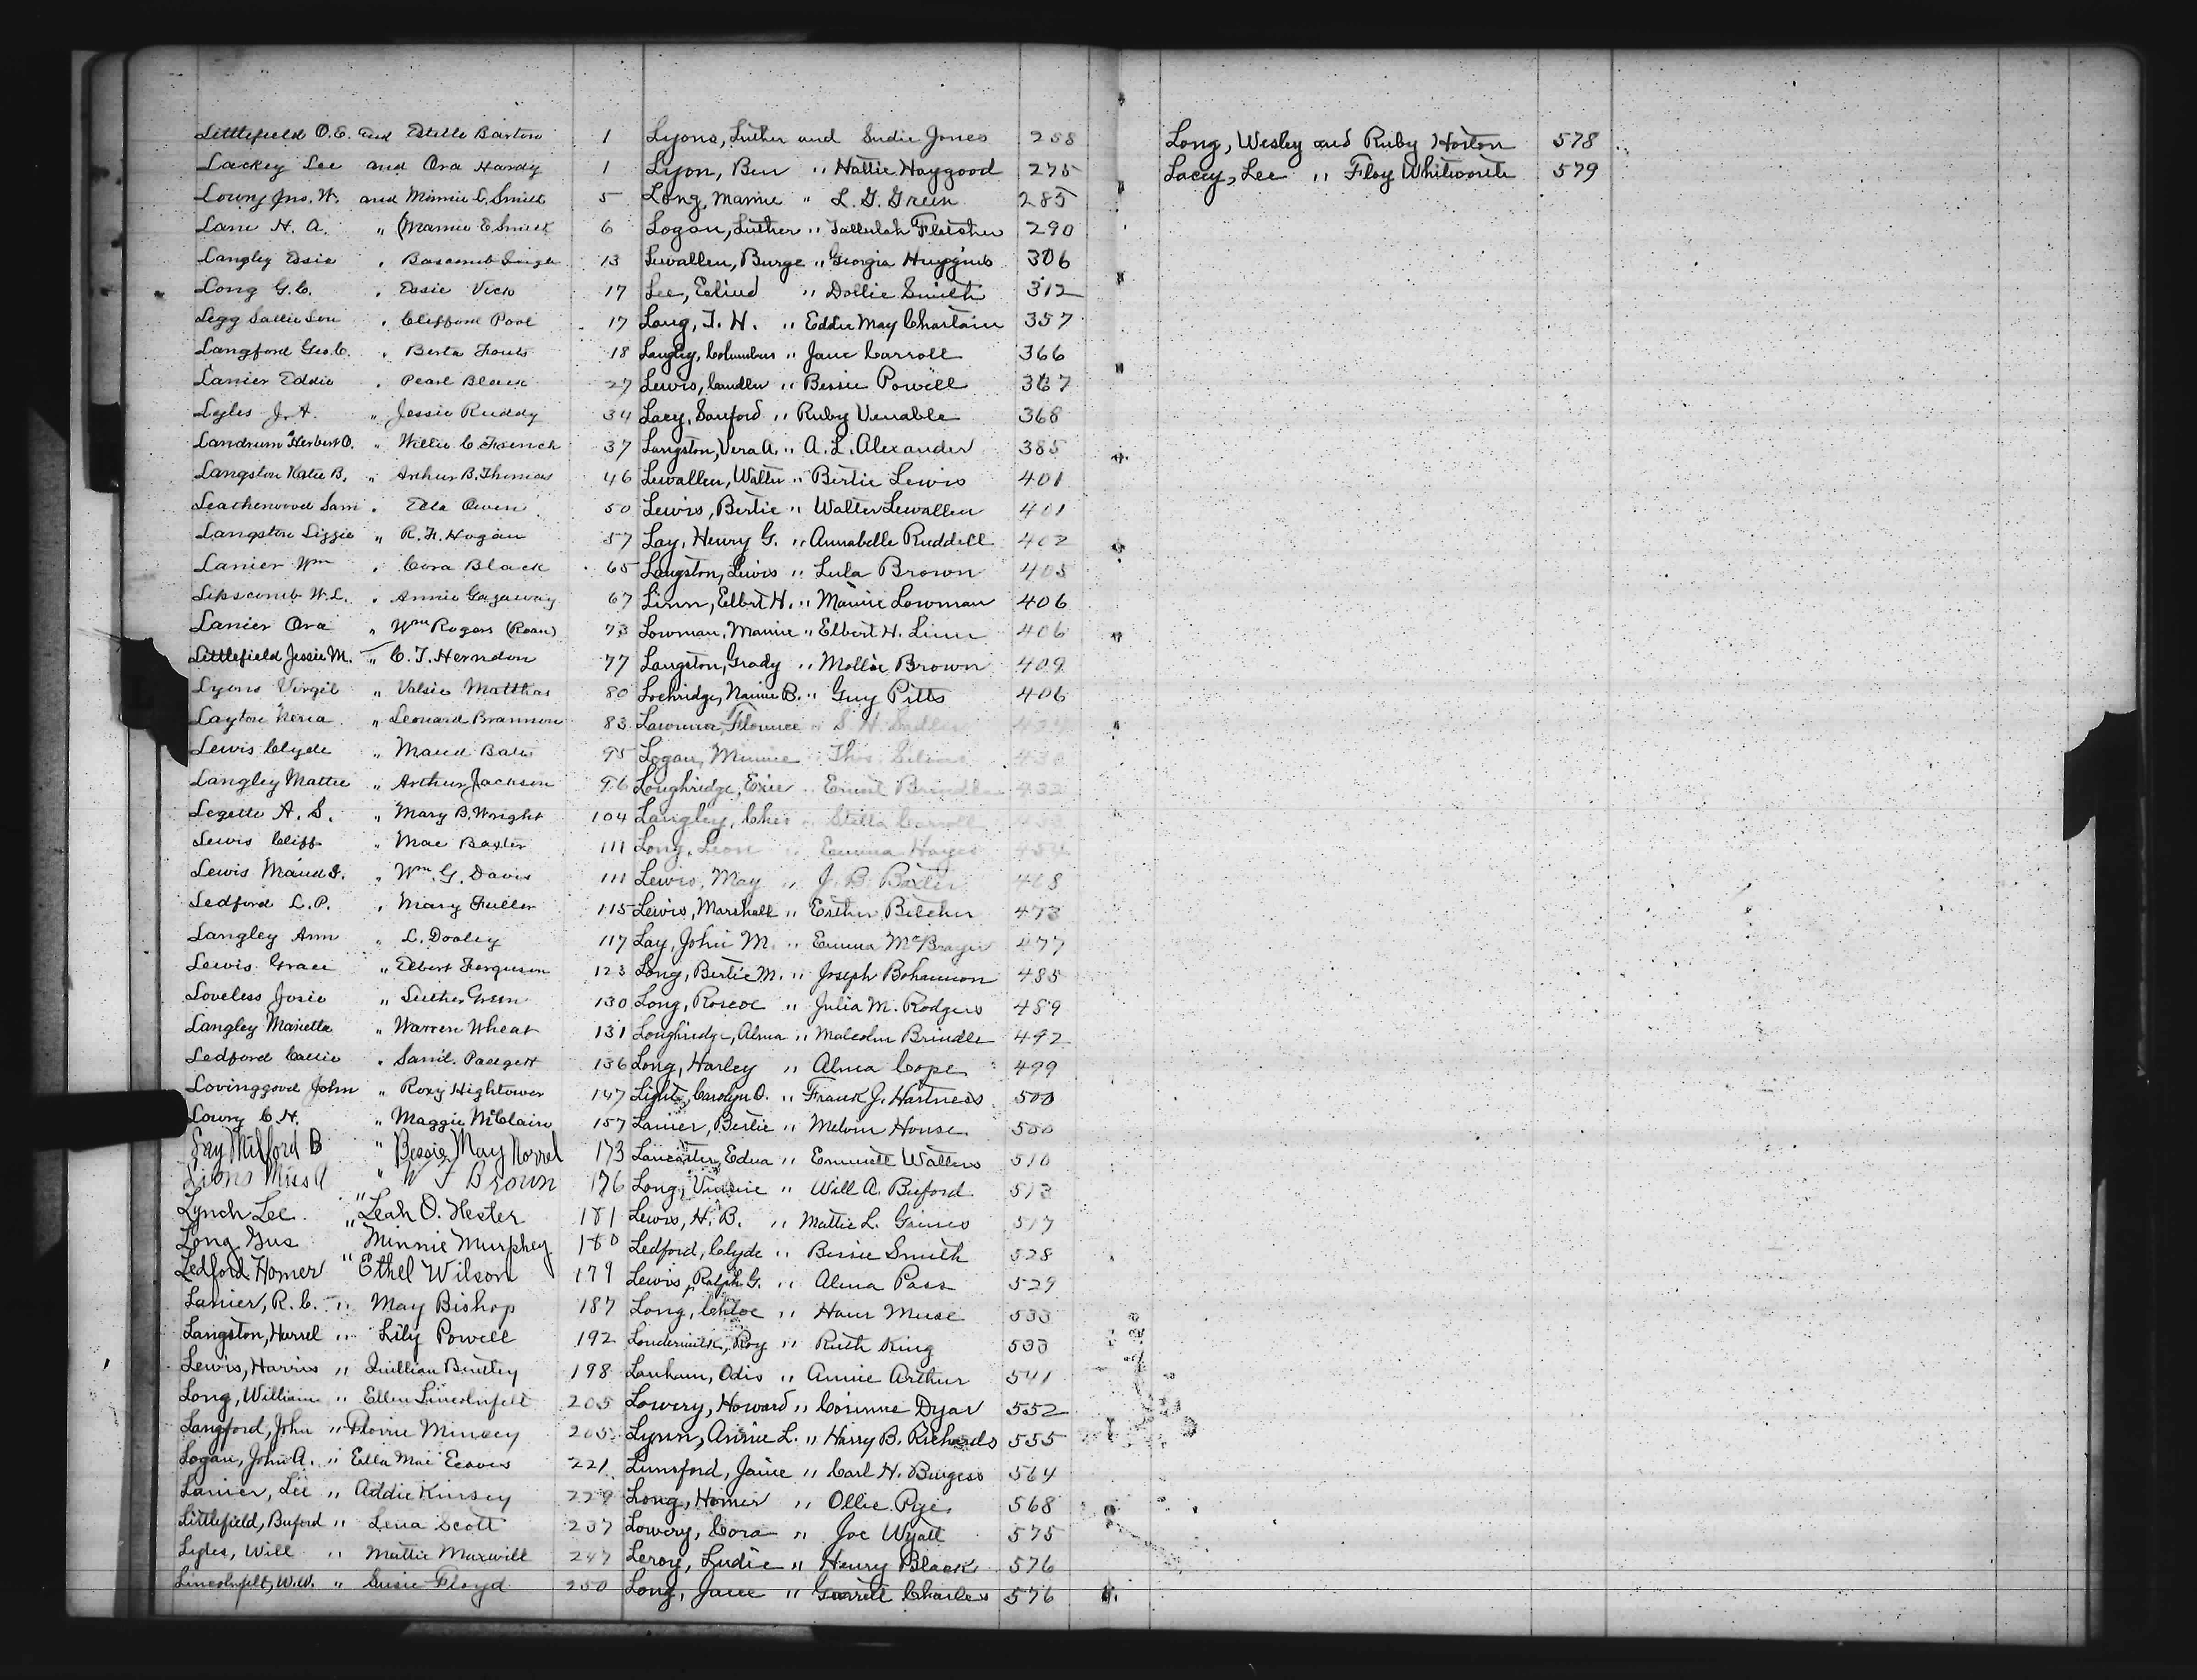 Littlefield O.E. and Estelle Barton 1
Lackey Lee and Ora Hardy 1
Lowry Jno. W. and Minnie C. Smith 5
Lane H. A. " (Mamie E. Smith 6
Langley Essie " Bascomb 13
Long G.C. " Essie Vick 17
Legg Sallie Lou " Clifford Pool 17
Langford Geo. C. " Berta Fouts 18
Lanier Eddie " Pearl Black 27
Lyles J. A. " Jessie Ruddy 34
Landrum Herbert O. " Willie C. French 37
Langston Katie B. " Arthur B. Thomas 46
Leatherwood Sam " Ella Owen 50
Langston Lizzie " R. F. Hogan 57
Lanier Wm " Cora Black 65
Lipscomb W.L. " Annie Gazaway 67
Lanier Ora " Wm Rogers (Roan) 73
Littlefield Jessie M. " C. T. Herndon 77
Lyons Virgil " Valsie Matthas 80
Layton Neria " Leonard Brannon 83
Lewis Clyde " Maud Bates 95
Langley Mattie " Arthur Jackson 96
Legette A. S. " Mary B. Wright 104
Lewis Cliff " Mae Baxter 111
Lewis Maud I. " Wm. G. Davis 111
Ledford L. P. " Mary Fuller 115
Langley Ann " L. Dooley 117
Lewis Grace " Elbert Ferguson 123
Loveless Josie " Luther Green 130
Langley Marietta " Warren Wheat 131
Ledford Callie " Saml. Padgett 136
Lovinggood John " Roxy Hightower 147
Lowry C. H. " Maggie McClain 157
Lay Milford B " Bessie May Norrel 173
Lions Miss A " W T Brown 176
Lynch Lee " Leah O. Hester 181
Long Gus " Minnie Murphey 180
Ledford Homer " Ethel Wilson 179
Lanier, R. C. " May Bishop 187
Langston, Harrel " Lily Powell 192
Lewis, Harris " Quillian Bentley 198
Long, William " Ellen Lincolnfelt 205
Langford, John " Florrie Mincey 205
Logan, John A. " Ella Mae Eaves 221
Lanier, Lee " Addie Kinsey 229
Littlefield, Buford " Lena Scott 237
Lyles, Will " Mattie Maxwell 247
Lincolnfelt, W.W. " Susie Floyd 250
Lyons, Luther and Sudie Jones 258
Lyon, Ben " Hattie Haygood 275
Long, Mamie " L. G. Green 285
Logan, Luther " Tallulah Fletcher 290
Lewallen, Burge " Georgia Huggins 306
Lee, Edmd " Dollie Smith 312
Long, T. H. " Eddie May Chastain 357
Langley, Columbus " Jane Carroll 366
Lewis, Candler " Bessie Powell 367
Lacy, Sanford " Ruby Venable 368
Langston, Vera A. " A. L. Alexander 385
Lewallen, Walter " Bertie Lewis 401
Lewis, Bertie " Walter Lewallen 401
Lay, Henry G. " Annabelle Ruddell 402
Langston, Lewis " Lula Brown 405
Linn, Elbert H. " Mamie Lowman 406
Lowman, Mamie " Elbert H. Linn 406
Langston, Grady " Mollie Brown 409
Lochridge, Nannie B. " Guy Pitts 406
Lawrence, Florence " S. H. Sadler
Logan, Minnie " Thos.
Loughridge, Exie " Ernest Brindle 432
Langley, Ches " Stella Carroll
Long, Leon " Emma Hayes 454
Lewis, May " J. B. Baxter 468
Lewis, Marshall " Esther Belcher 473
Lay, John M. " Emma McBrayer 477
Long, Bertie M. " Joseph Bohannon 485
Long, Roscoe " Julia M. Rodgers 489
Loughridge, Alma " Malcolm Brindle 492
Long, Harley " Alma Cope 499
Light, Carolyn O. " Frank J. Hartness 500
Lanier, Bertie " Melvin House 500
Lancaster, Edna " Emmett Watters 510
Long, Vinnie " Will A. Buford 513
Lewis, H. B. " Mattie L. Gaines 517
Ledford, Clyde " Bessie Smith 528
Lewis, Ralph G. " Alma Pass 529
Long, Chloe " Ham Muse 533
Loudermilk, Roy " Ruth King 533
Lanham, Odis " Annie Arthur 541
Lowery, Howard " Corinne Dyar 552
Lynn, Annie L. " Harry B. Richards 555
Lunsford, Janie " Carl H. Burgess 564
Long, Homer " Ollie Pye 568
Lowery, Cora " Joe Wyatt 575
Leroy, Ludie " Henry Black 576
Long, Jane " Garrett Charles 576
Long, Wesley and Ruby Horton 578
Lacey, Lee " Floy Whitworth 579